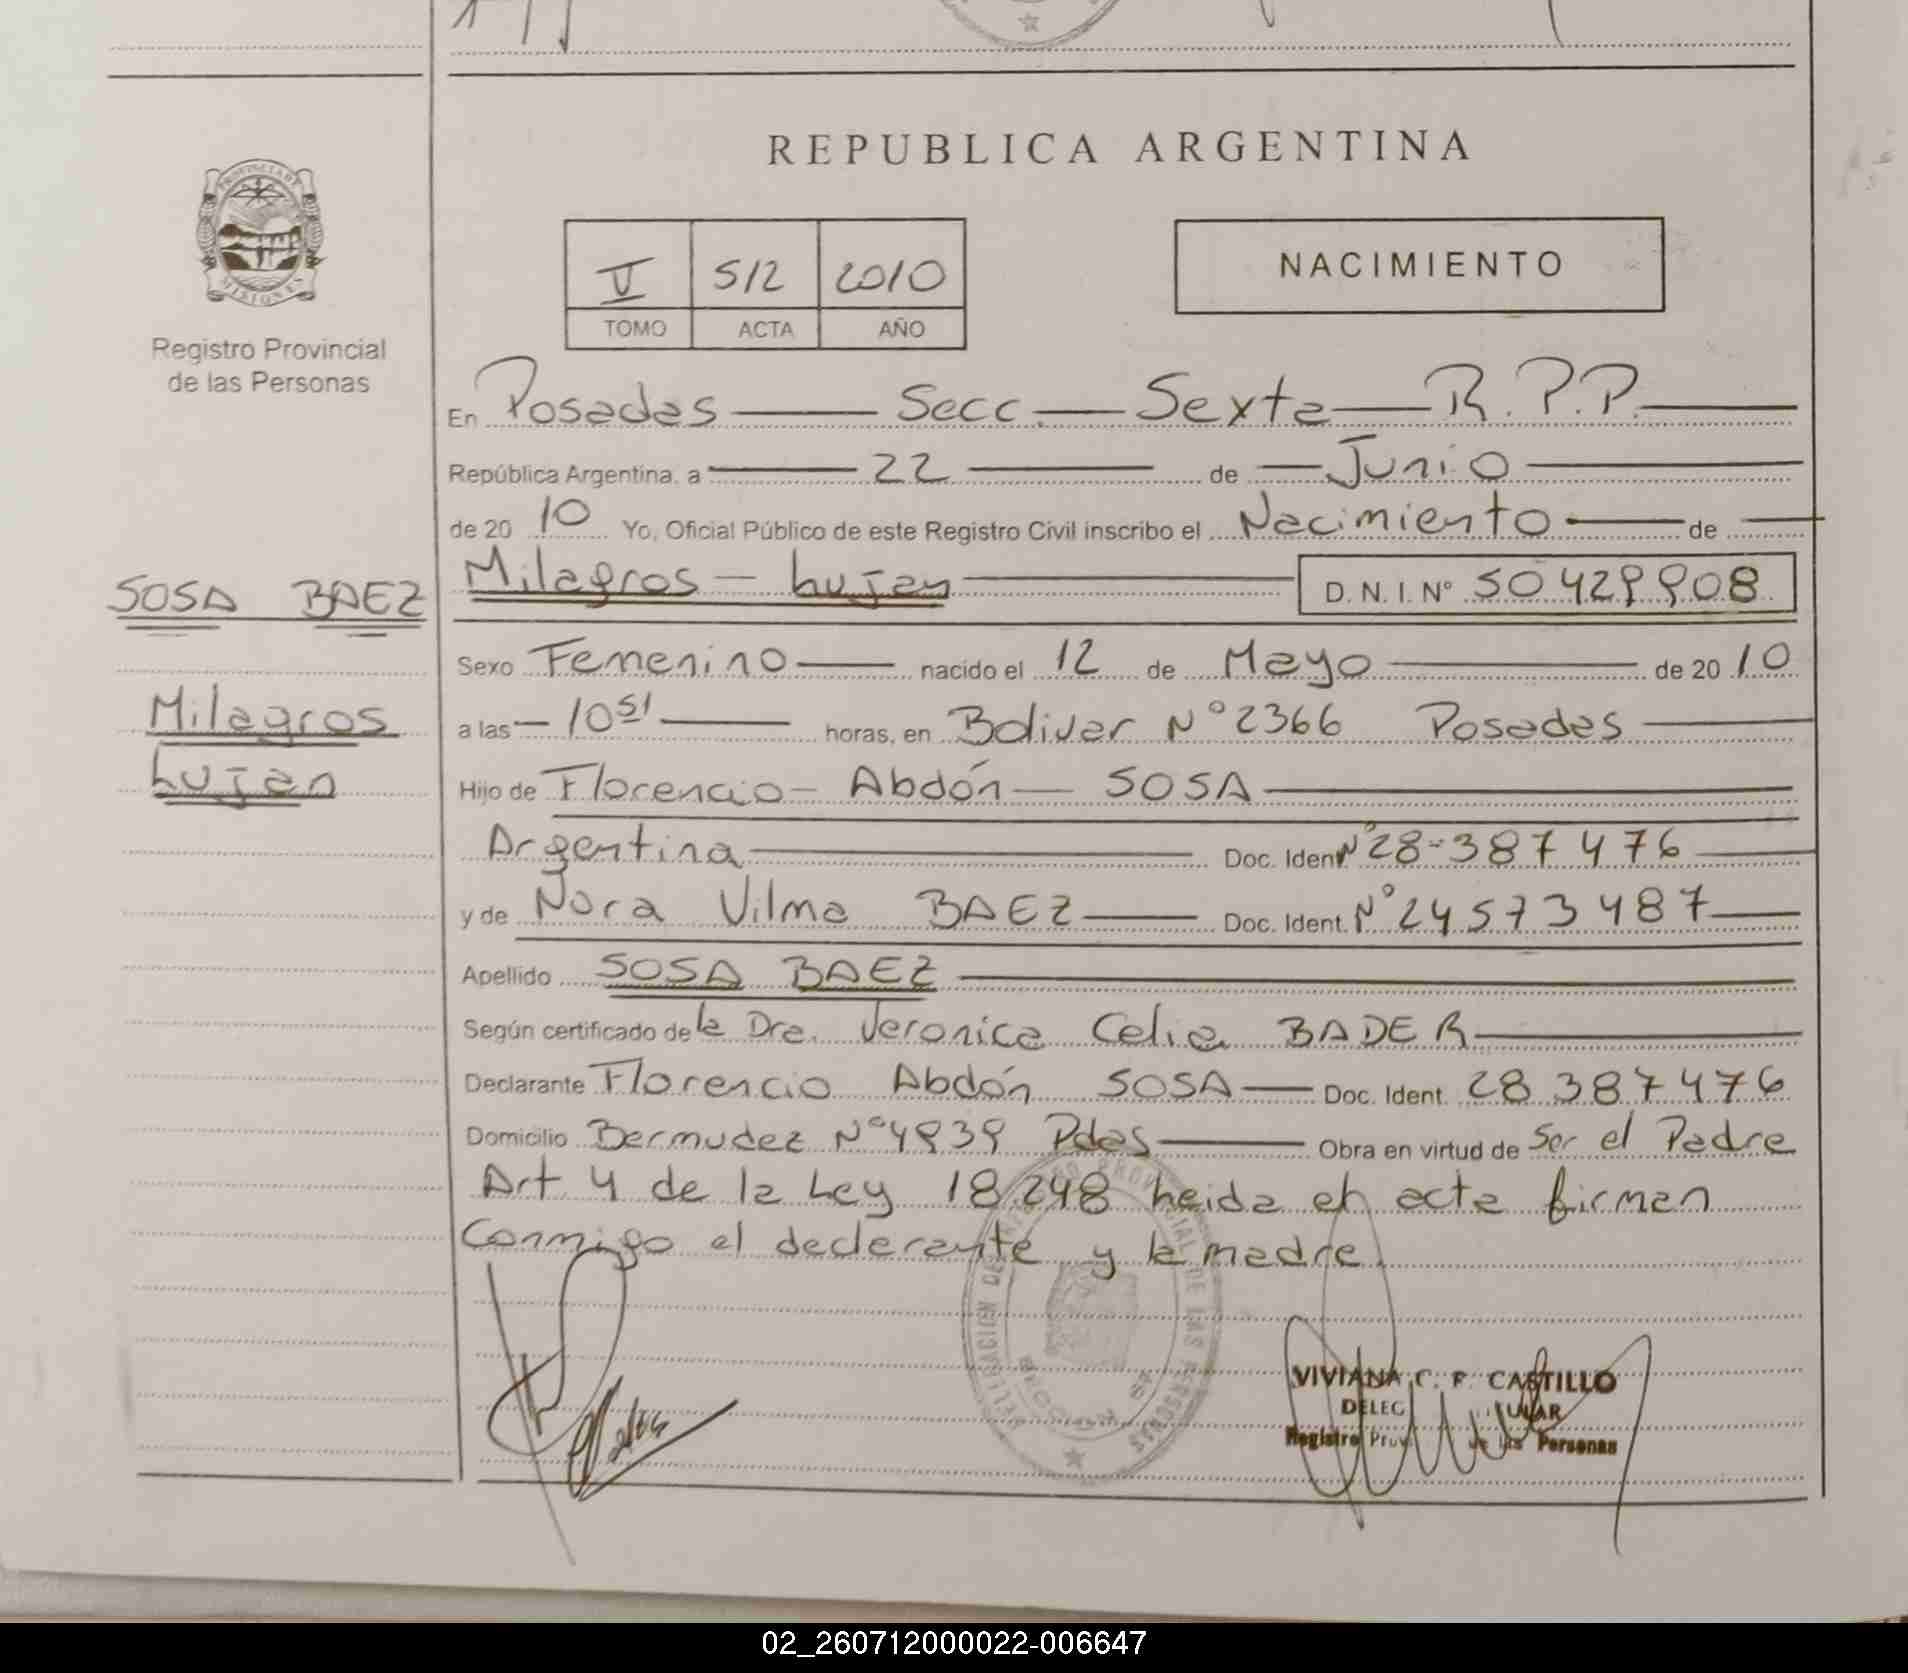 REPUBLICA ARGENTINA
PROVINCIA DE MISIONES
Registro Provincial
de las Personas
V 512 2010
TOMO ACTA AÑO
NACIMIENTO
En Posadas Secc. Sexta R.P.P.
República Argentina, a 22 de Junio
de 2010 Yo, Oficial Público de este Registro Civil inscribo el Nacimiento de
Milagros Lujan D. N. I. Nº 50429908
SOSA BAEZ
Milagros
Lujan
Sexo Femenino nacido el 12 de Mayo de 2010
a las 10 51 horas, en Bolivar Nº 2366 Posadas
Hijo de Florencio Abdón SOSA
Argentina Doc. Ident Nº 28.387476
y de Nora Vilma BAEZ Doc. Ident. Nº 24573487
Apellido SOSA BAEZ
Según certificado de la Dra. Veronica Celia BADER
Declarante Florencio Abdón SOSA Doc. Ident. 28387476
Domicilio Bermudez Nº 4939 Pdas Obra en virtud de Ser el Padre
Art 4 de la Ley 18.248 leida el acta firman
Conmigo el declarante y la madre.
DELEGACION DE REGISTRO PROVINCIAL DE LAS PERSONAS
VIVIANA C. F. CASTILLO
Registro de las Personas
02_260712000022-006647